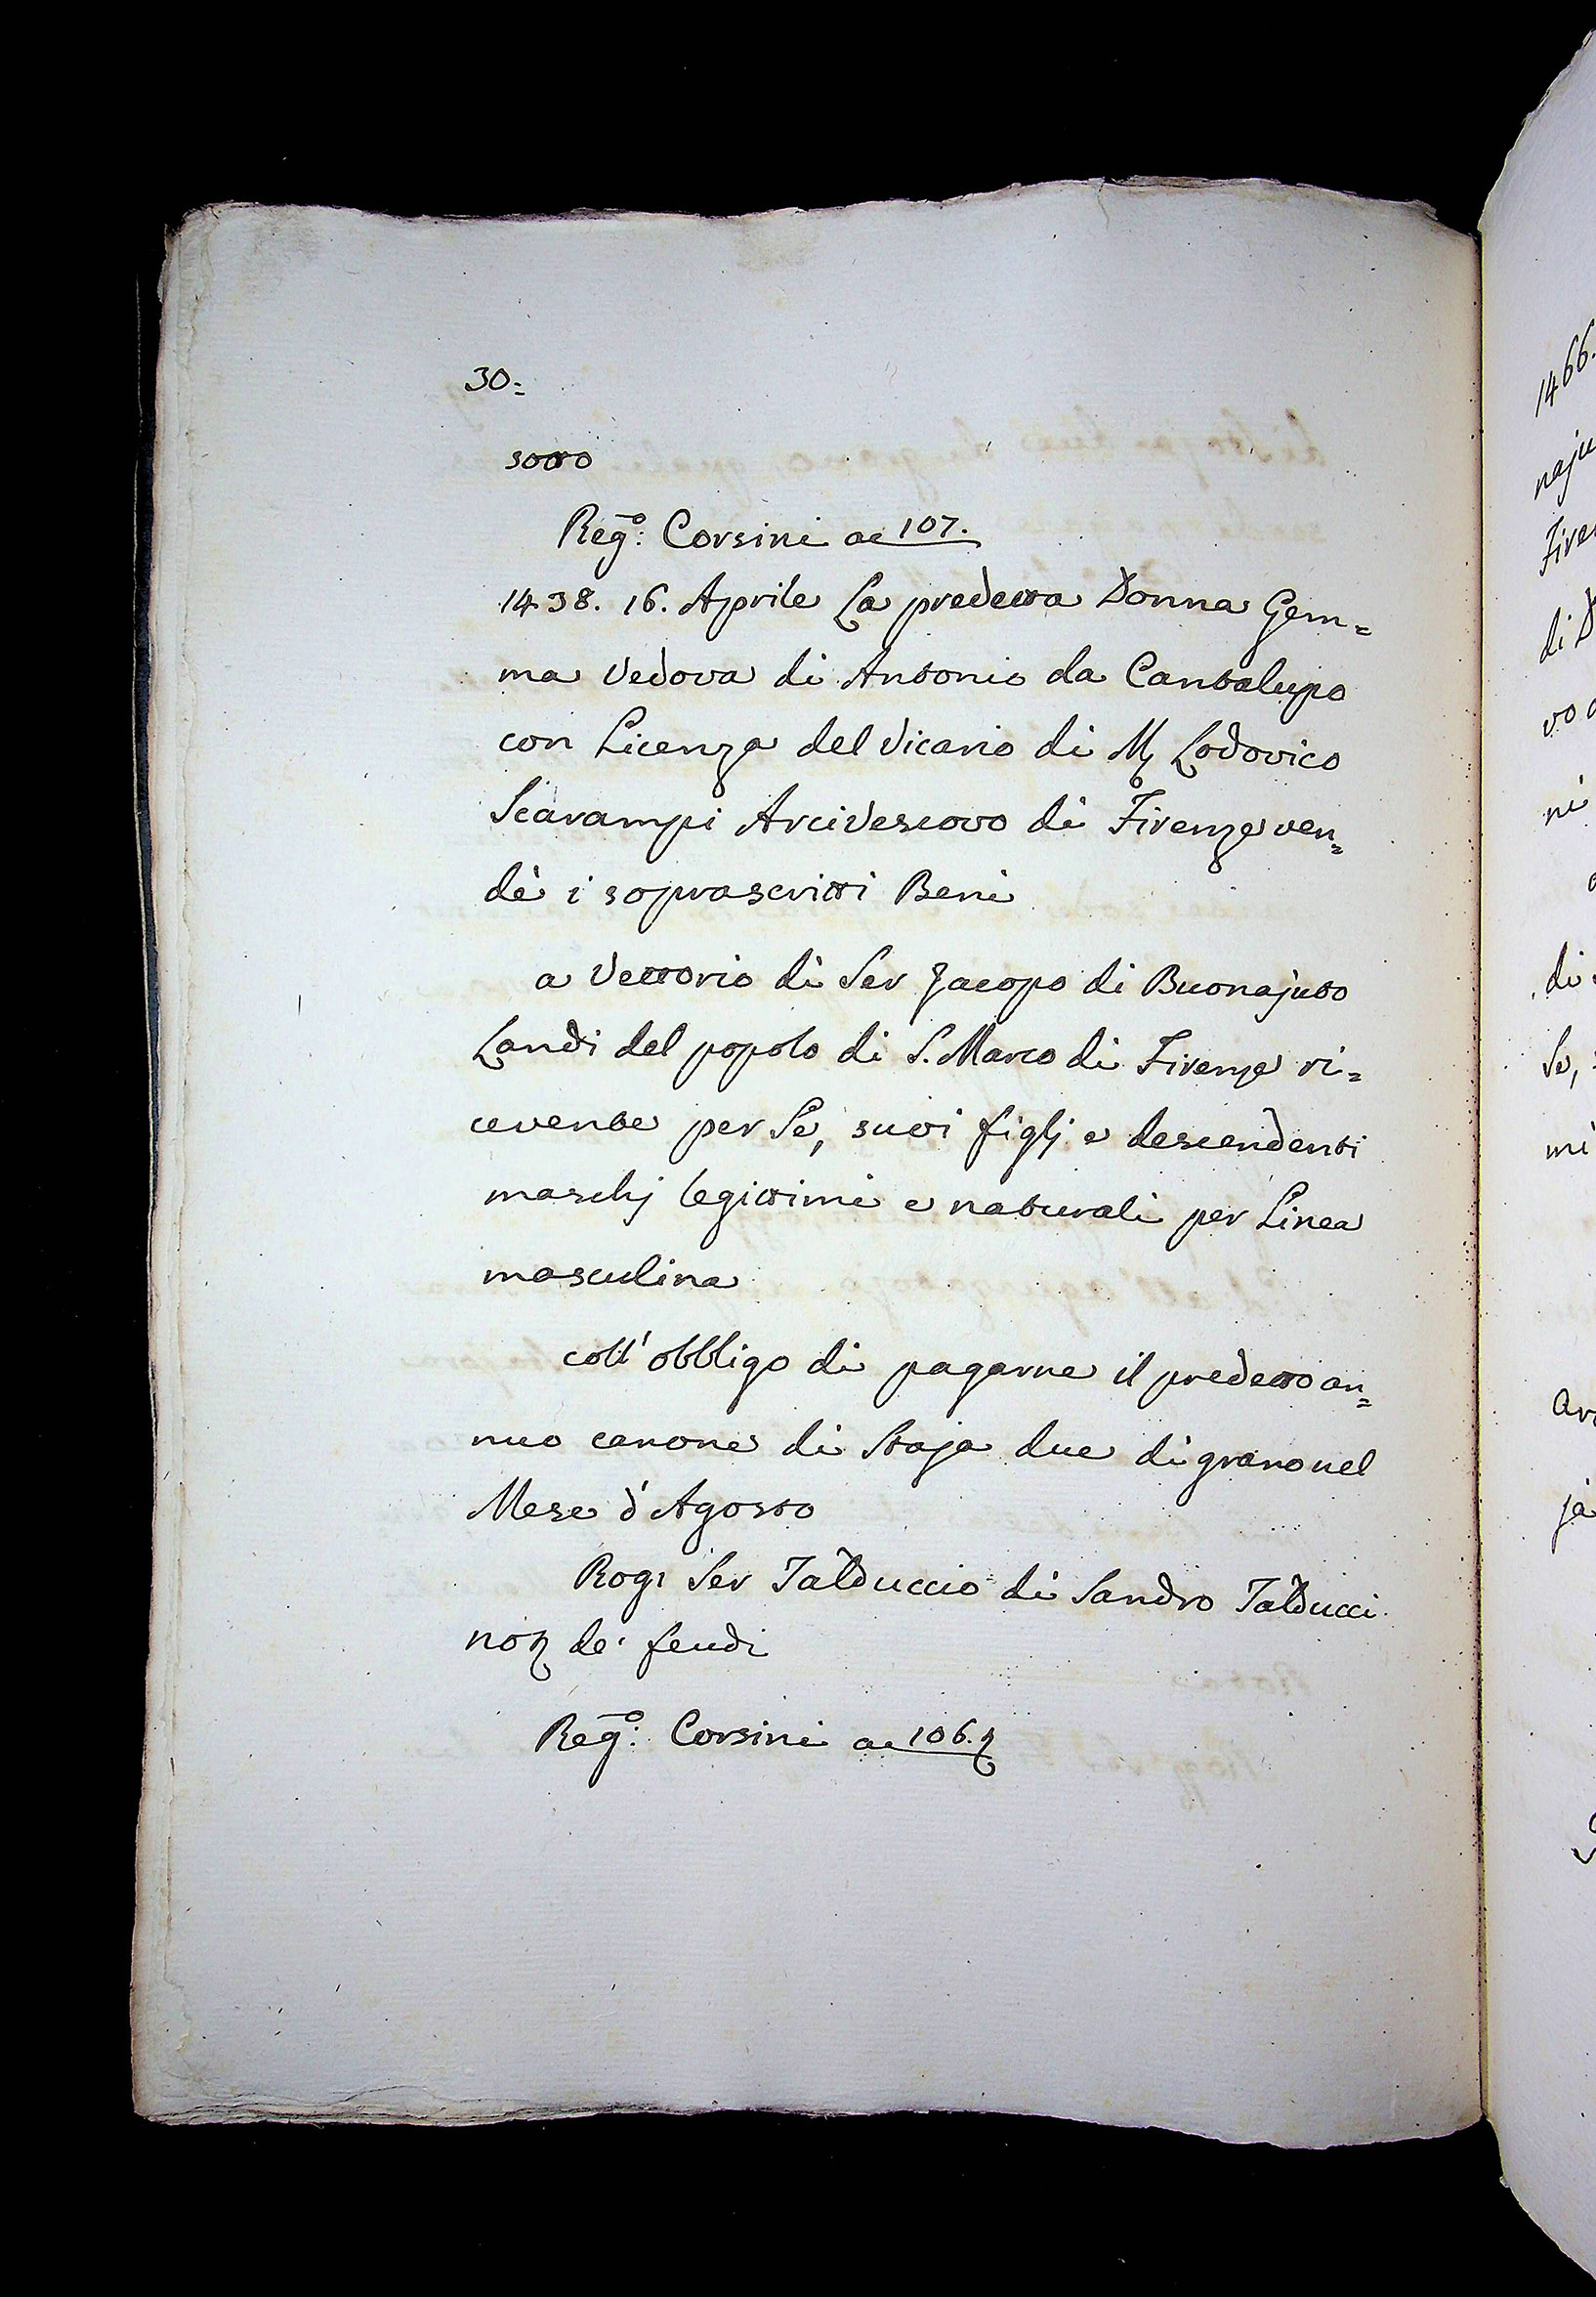 30=
sotto
Regº: Corsini ac 107.
1438. 16. Aprile La predetta Donna Gem=
ma Vedova di Antonio da Cantalupo
con Licenza del Vicario di M. Lodovico
Scarampi Arcivescovo di Firenze ven=
dè i soprascritti Beni
a Vettorio di Ser Jacopo di Buonajuto
Landi del popolo di S. Marco di Firenze ri=
cevente per Se, suoi figlj e descendenti
maschj legittimi e naturali per Linea
masculina
coll' obbligo di pagarne il predetto an=
nuo canone di Staja due di grano nel
Mese d'Agosto
Rog. Ser Talduccio di Sandro Talducci
de' feudi
Regº: Corsini ac 106.
1466.
naju
Fire
di D
vo
ni
di
Se,
mi
ar
ja